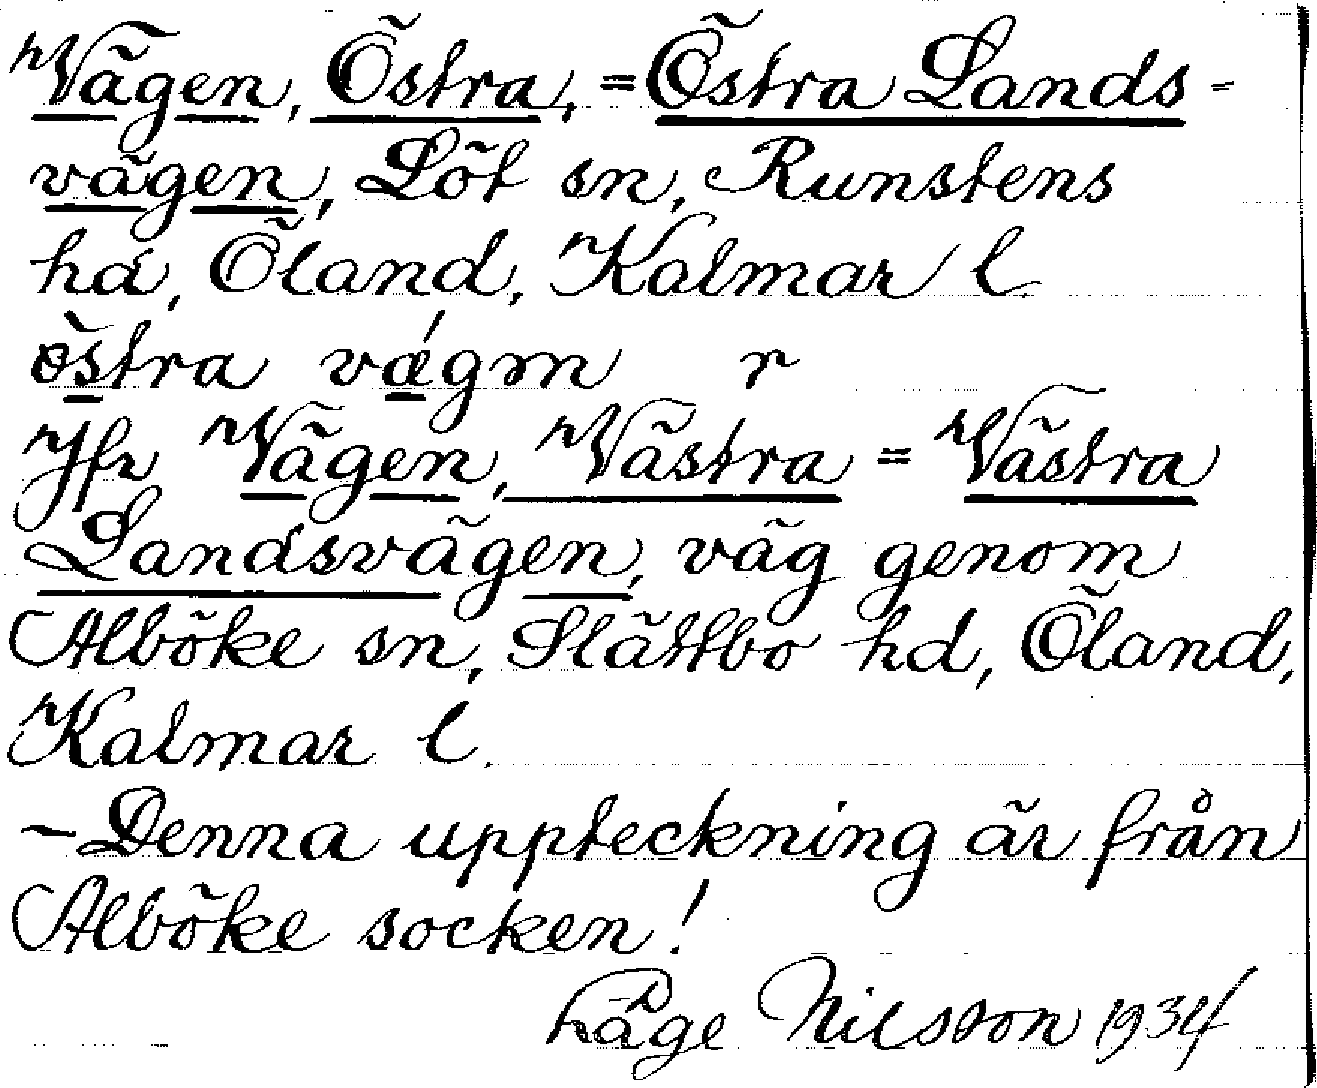 Vägen, Östra, = Östra Lands-
vägen, Löt sn, Runstens
hd, Öland, Kalmar l
östra vǽgm r
Jfr Vägen, Västra = Västra
Landsvägen, väg genom
Alböke sn, Slättbo hd, Öland,
Kalmar l.
- Denna uppteckning är från
Alböke socken!
Håge Nilsson 1934